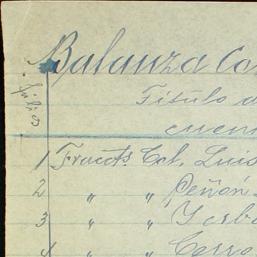 Balanza Co
Julio
Titulo d
cuen
1 Fraccts. Col. Luis
2 " " Peñón
3 " " Yerb
4 " " Cerro